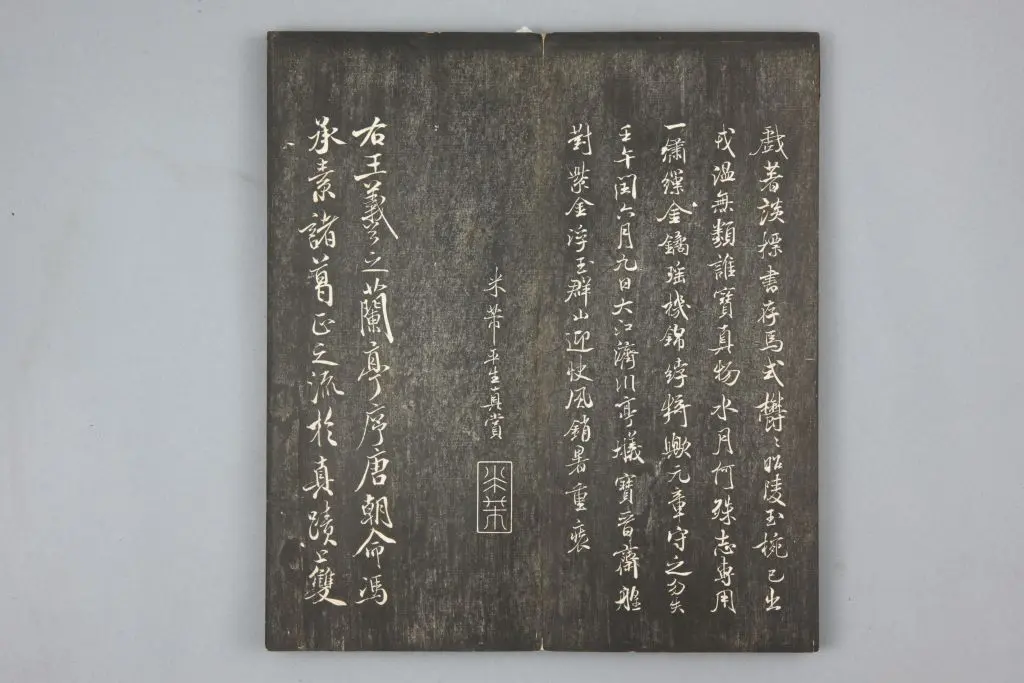 戲著談標書存焉式鬱〻昭陵玉椀已出
戎溫無類誰寶真物水月何殊志專用
一繡繅金鐍瑤機錦綍猗歟元章守之勿失
壬午閏六月九日大江濟川亭艤寶晉齋艎
對紫金浮玉群山迎快風銷暑重裝
米芾平生真賞
米芾
右王羲之蘭亭序唐朝命馮
承素諸葛正之流於真蹟上雙